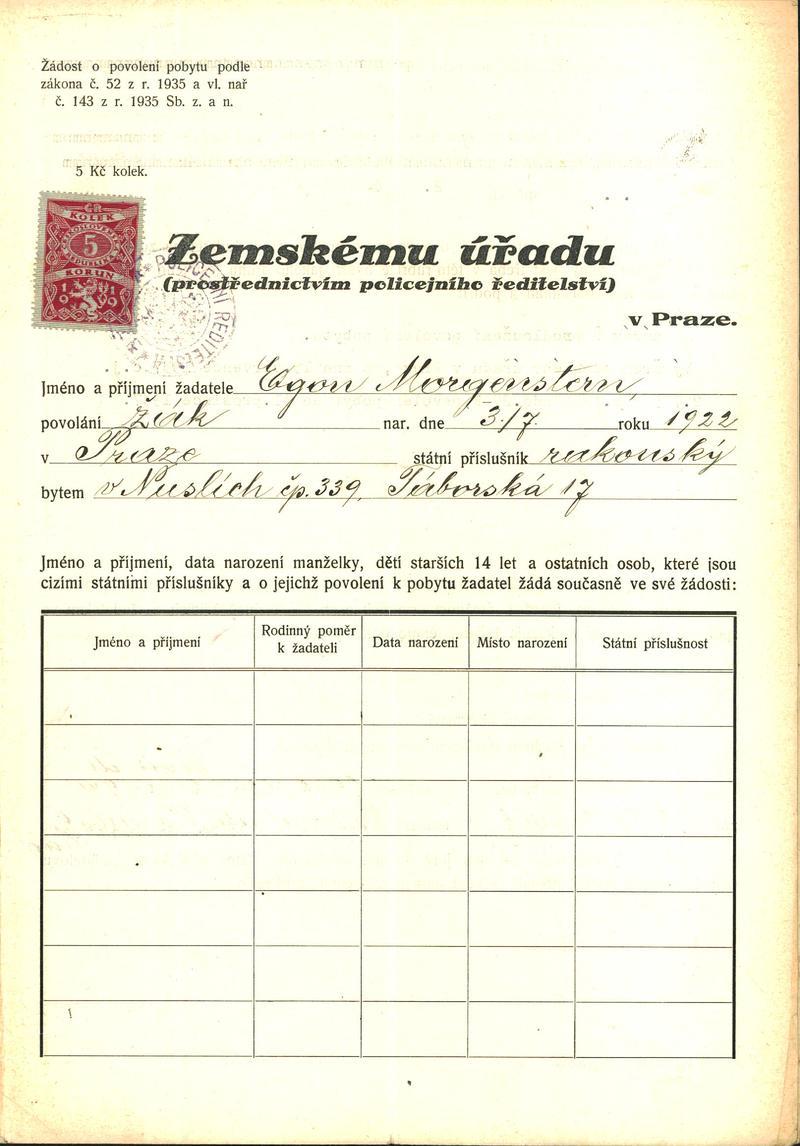 Žádost o povolení pobytu podle
zákona č. 52 z r. 1935 a vl. nař
č. 143 z r. 1935 Sb. z. a n.
5 Kč kolek.
ČR
KOLEK
ČESKOSLOVENSKÁ
5
REPUBLIKA
KORUN
19
POLICEJNÍ ŘEDITELSTVÍ
Zemskému úřadu
(prostřednictvím policejního ředitelství)
v Praze.
Jméno a příjmení žadatele Egon Morgenstern,
povolání žák nar. dne 3/7. roku 1922
v Praze státní příslušník rakouský
bytem v Nuslích čp. 339, Táborská 17
Jméno a příjmení, data narození manželky, dětí starších 14 let a ostatních osob, které jsou
cizími státními příslušníky a o jejichž povolení k pobytu žadatel žádá současně ve své žádosti:
Jméno a příjmení Rodinný poměr k žadateli Data narození Místo narození Státní příslušnost